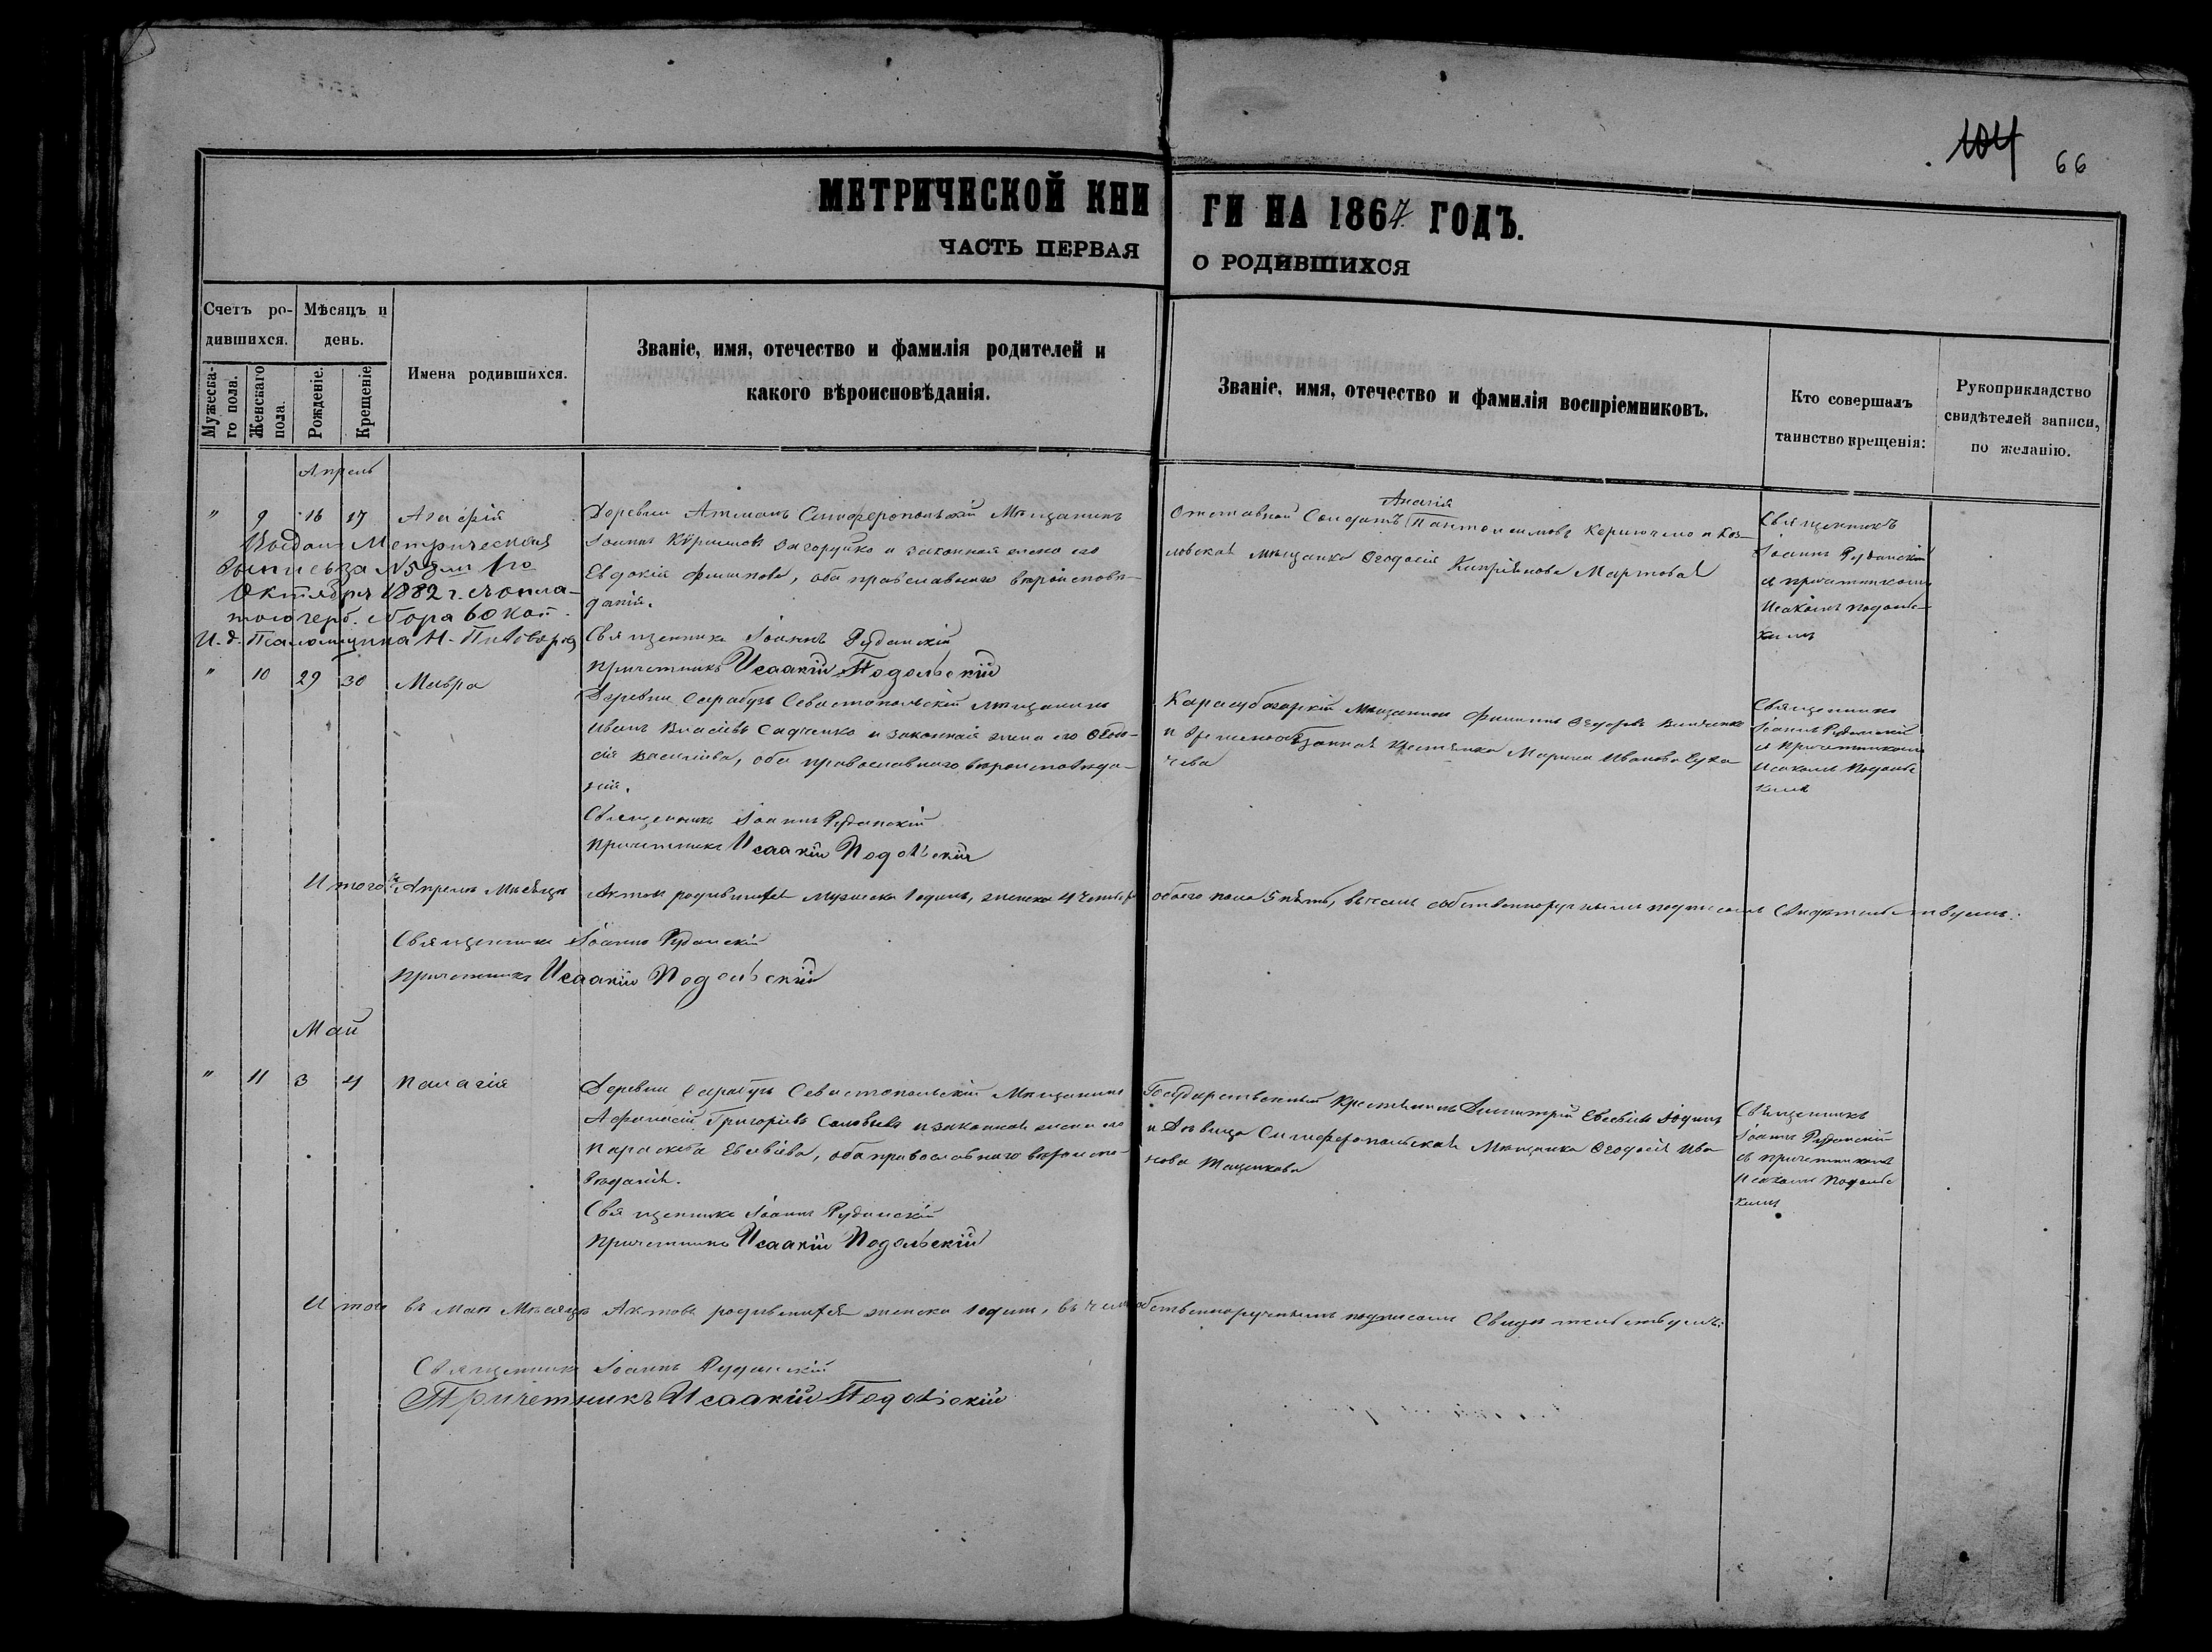 104 66
МЕТРИЧЕСКОЙ КНИГИ НА 1867. ГОДЪ.
ЧАСТЬ ПЕРВАЯ О РОДИВШИХСЯ
Счетъ родившихся.
Мѣсяцъ и день.
Мужескаго пола.
Женскаго пола.
Рожденіе.
Крещеніе
Имена родившихся.
Званіе, имя, отечество и фамилія родителей и
какого вѣроисповѣданія.
Званіе, имя, отечество и фамилія воспріемниковъ.
Кто совершалъ
таинство крещенія:
Рукоприкладство
свидѣтелей записи,
по желанію.
Апрель
" 9 16 17
Деревни Атманъ Симферопольскій Мѣщанинъ
Іоаннъ Загоруйко и законная жена его
Евдокія Филипова, оба православнаго вѣроисповѣ-
данія.
Священникъ Іоаннъ Руданскій
Причетникъ Исаакій Подольскій
Отставной Солдатъ Ананія Пантолеимовъ и Коз-
ловская мѣщанка Ѳеодосія Кипріянова Мартовая
Священникъ
Іоаннъ Руданскій
съ причетникомъ
Исаакомъ Подольс-
кимъ
Выдана Метрическая
Выпись за № 5 1го
Октября 1882 г. съ опла-
тою герб. сбора 60 коп.
И. д. Псаломщика Н. Пивоваровъ
" 10 29 30 Мавра
Деревни Сарабузъ Севастопольскій мѣщанинъ
Иванъ Власіевъ Садченко и законная жена его Ѳеодо-
сія Василіева, оба православнаго вѣроисповѣда-
нія.
Священникъ Іоаннъ Руданскій
Причетникъ Исаакій Подольскій
Карасубазарскій Мѣщанинъ Филиппъ Ѳеодоровъ
и временнообязанная крестьянка Марина Иванова
чева
Священникъ
Іоаннъ Руданскій
съ Причетникомъ
Исаакомъ Подольс
кимъ
Итого въ Апрелѣ Мѣсяцѣ Актовъ родившихся мужеска 1 одинъ, женска 4 четыре обоего пола 5 пять, въ чемъ собственноручнымъ подписомъ Свидѣтельствуемъ:
Священникъ Іоаннъ Руданскій
Причетникъ Исаакій Подольскій
Май
" 11 3 4 Палагія
Деревни Сарабузъ Севастопольскій Мѣщанинъ
Афанасій Григоріевъ Саловьевъ и законная жена его
Параскева Евсевіева, оба православнаго вѣроиспо-
вѣданія.
Священникъ Іоаннъ Руданскій
Причетникъ Исаакій Подольскій
Государственный Крестьянинъ Димитрій Евсевіевъ
и Дѣвица Симферопольская Мѣщанка Ѳеодосія Ива
нова
Священникъ
Іоаннъ Руданскій
съ причетникомъ
Исаакомъ Подольс
кимъ
Итого въ Маѣ Мѣсяцѣ Актовъ родившихся женска 1 одинъ, въ чемъ собственноручнымъ подписомъ Свидѣтельствуемъ:
Священникъ Іоаннъ Руданскій
Причетникъ Исаакій Подольскій